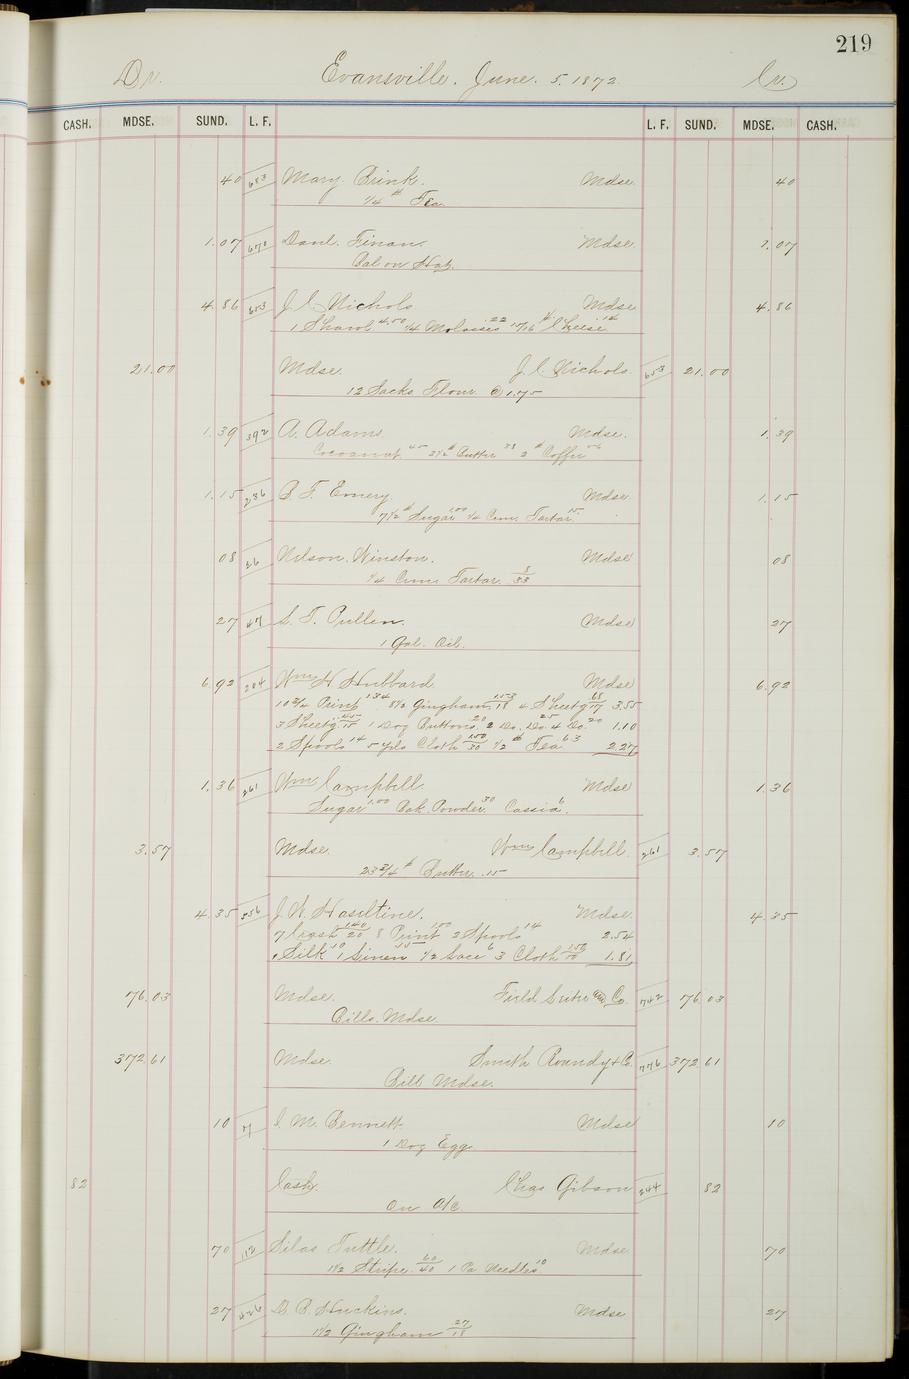 219
Dr. Evansville. June. 5. 1872 Cr.
CASH. MDSE. SUND. L. F. L. F. SUND. MDSE. CASH.
40 683 Mary Brink. Mdse 40
1/4 # Tea
1.07 670 Danl. Finan. Mdse 1.07
Bal on Hat.
4.86 653 J C Nichols Mdse 4.86
1 Shawl 4.50 1/4 Molasses 22 # Cheese 14
21.00 Mdse. J. C. Nichols. 653 21.00
12 Sacks Flour @ 1.75
1.39 392 A. Adams Mdse. 1.39
Cocoanut 45 2 1/2 # Butter 38 2 # Coffee 56
1.15 236 B. F. Emery. Mdse 1.15
7 1/2 # Sugar 1.00 1/4 Crm. Tartar 15
08 Nelson Winston. Mdse 08
1/4 Crm Tartar 8/33
27 47 S. T. Pullen. Mdse 27
1 Gal. Oil.
6.92 284 Wm H Hubbard Mdse 6.92
10 3/4 Print 1.34 8 1/2 Gingham 1.53/18 4 Sheetg 68/17 3.55
3 Sheetg 45/15 1 Doz Buttons 20 2 Do. Do. 25 4 Do. 20 1.10
2 Spools 14 5 yds Cloth 1.50/30 1/2 # Tea 63 2.27
1.36 261 Wm Campbell. Mdse 1.36
Sugar 1.00 Bak. Powder 30 Cassia 6
3.57 Mdse. Wm Campbell. 261 3.57
23 3/4 # Butter .15
4.35 556 J. W. Haseltine. Mdse 4.35
7 Crash 1.40/20 8 Print 1.00 2 Spools 14 2.54
Silk 10 1 Linen 15 1/2 Lace 6 3 Cloth 1.50/50 1.81
76.03 Mdse. Field Leiter and Co. 742 76.03
Bills. Mdse
372 61 Mdse. Smith Roundy & Co. 776 372 61
Bill Mdse.
10 7 C. M. Bennett Mdse 10
1 Doz Egg
82 Cash. Chas Gibson 244 82
On A/c
70 112 Silas Tuttle. Mdse 70
1 1/2 Stripe. 60/40 1 Pa Needles 10
27 426 D. B. Huckins. Mdse 27
1 1/2 Gingham 27/18